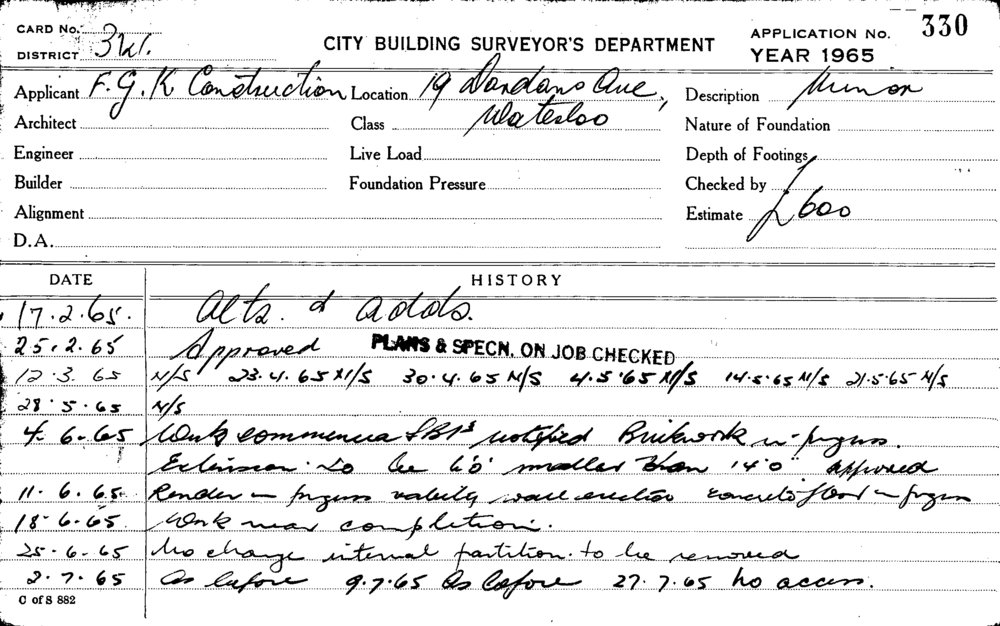 CARD No.
DISTRICT 3W.
CITY BUILDING SURVEYOR'S DEPARTMENT
APPLICATION No. 330
YEAR 1965
Applicant F.G.K Construction Location 19 Dandano Ave, Waterloo Description Minor
Architect Class Nature of Foundation
Engineer Live Load Depth of Footings
Builder Foundation Pressure Checked by
Alignment Estimate £600
D.A.
DATE HISTORY
17.2.65. Alts. & adds.
25.2.65 Approved PLANS & SPECN. ON JOB CHECKED
12.3.65 N/S 23.4.65 N/S 30.4.65 N/S 4.5.65 N/S 14.5.65 N/S 21.5.65 N/S
28.5.65 N/S
4.6.65 Work commenced notified Brickwork in progress.
Extension to be 6'0" smaller than 14'0" approved
11.6.65. Render in progress wall erected concrete floor in progress
18.6.65 Work near completion.
25.6.65 No change internal partition to be removed
2.7.65 As before 9.7.65 As before 27.7.65 No access.
C of S 882